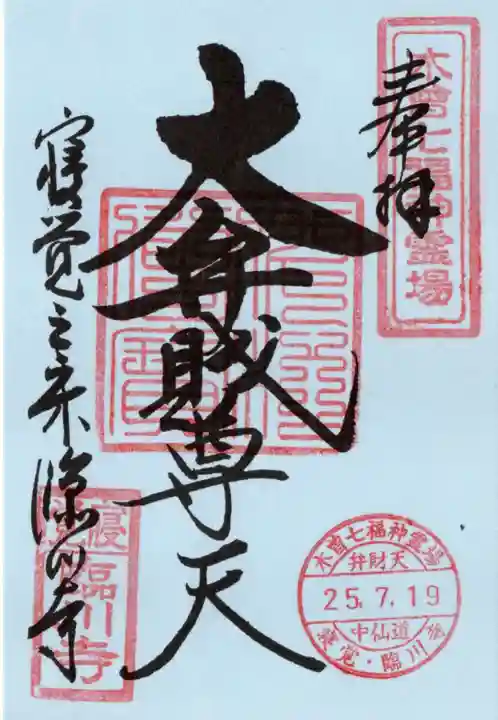 木曽七福神霊場
奉拝
大弁財尊天
寝覚之床臨川寺
臨川寺
木曽七福神霊場
弁財天
25.7.19
中仙道
寝覚・臨川寺